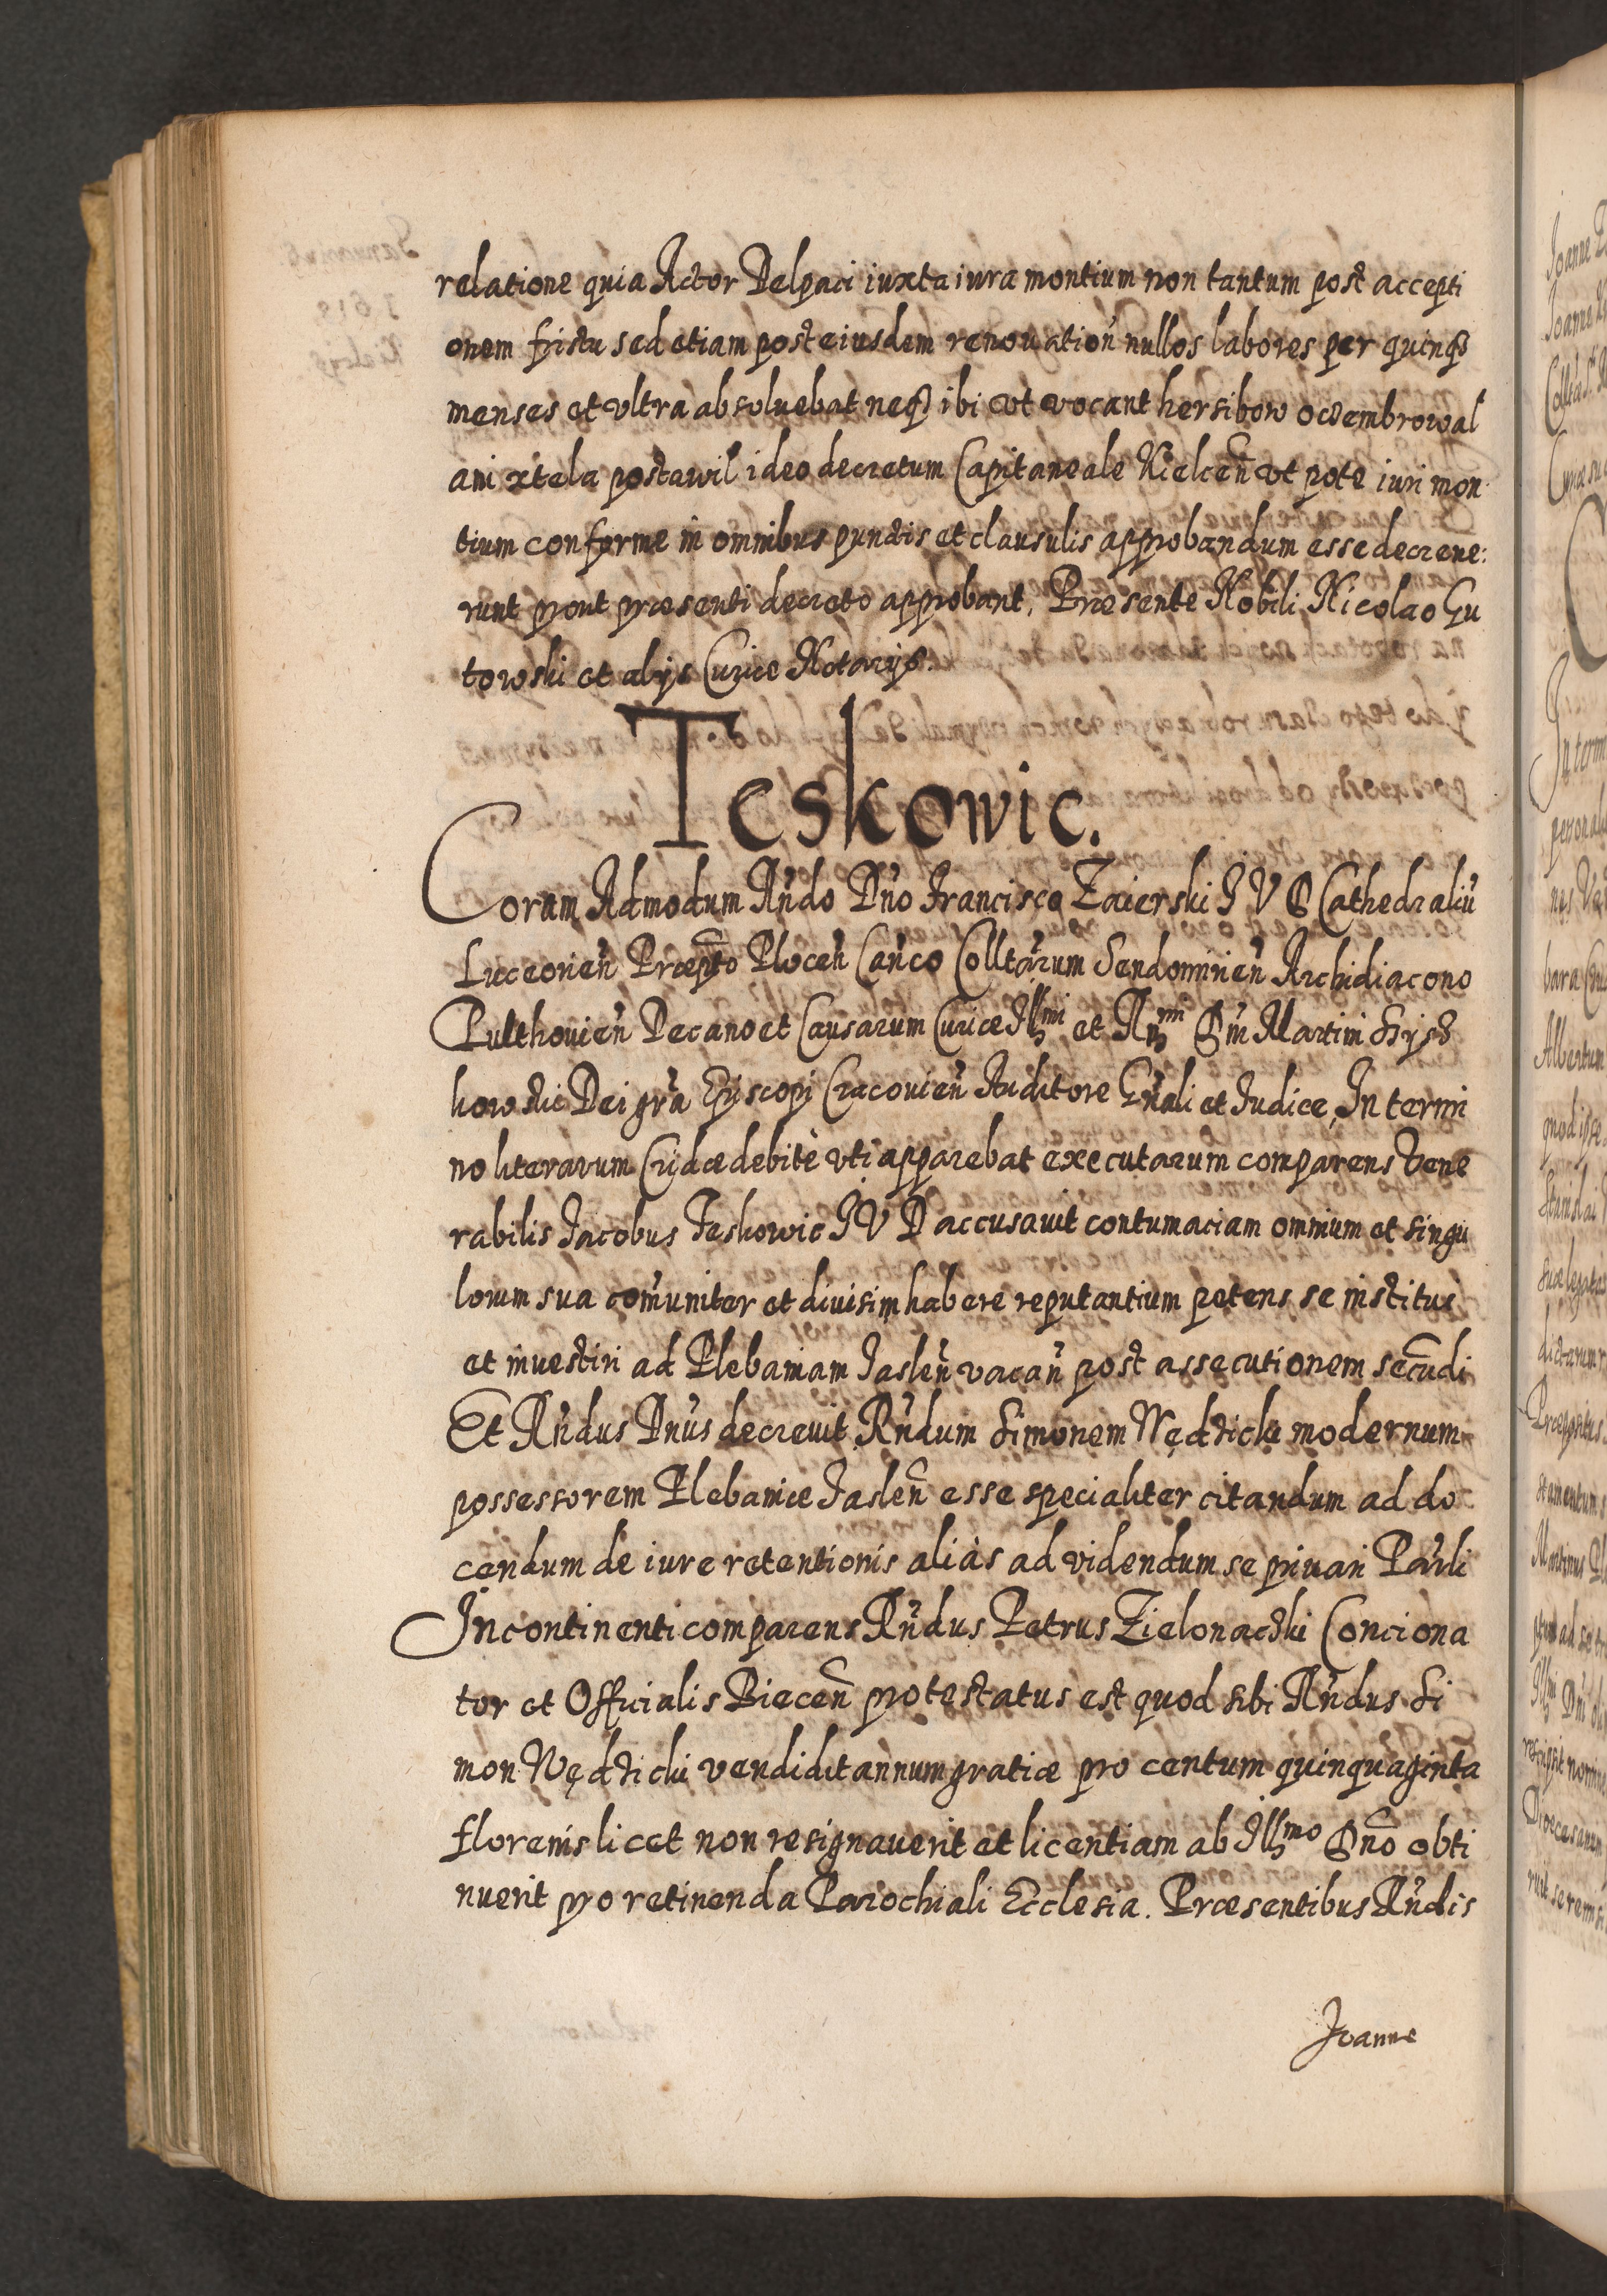 relatione quia Actor Delpaci iuxta iura montium non tantum post accepti
onem fristu sed etiam post eiusdem renouation̄ nullos labores per quinqȝ
menses et vltra absoluebat neqȝ ibi vt vocant hersibow ocembrowal
ani xtela postawil ideo decretum Capitaneale Kielcen̄ vt pote iuri mon
tium conforme in omnibus punctis et clausulis approbandum esse decreue:
runt prout præsenti decreto approbant, Præsente Nobili Nicolao Gu
towski et alijs Curiæ Notarijs.
Teskowic.
Coram Admodum Rn̄do Dn̄o Francisco Zaierski I V D Cathedraliū
Luceorien̄ Præpto Plocen̄ Can̄co Colltārum Sendomirien̄ Archidiacono
Pulthouien̄ Decano et Causarum Curiæ Illmi et Rnmi Dni Martini Szysz
kowski Dei grā Episcopi Cracouien̄ Auditore Gn̄ali et Iudice, In termi
no literarum Crÿdæ debitè vti apparebat executarum comparens Vene
rabilis Jacobus Teskowic I V D accusauit contumaciam omnium et singu
lorum sua com̄uniter et diuisim habere reputantium petens se institui
et inuestiri ad Plebaniam Jaslen̄ vacan̄ post assecutionem secūdi
Et Rn̄dus Dn̄us decreuit Rn̄dum Simonem Nędzicki modernum
possessorem Plebaniæ Jaslen̄ esse specialiter citandum ad do
cendum de iure retentionis aliàs ad videndum se priuari
In continenti comparens Rn̄dus Petrus Zielonacki Conciona
tor et Officialis Biecen̄ protestatus est quod sibi Rn̄dus Si
mon Nędzicki vendidit annum gratiæ pro centum quinquaginta
florenis licet non resignauerit et licentiam ab Illmo Dn̄o obti
nuerit pro retinenda Parochiali Ecclesia. Præsentibus Rn̄dis
Joanne